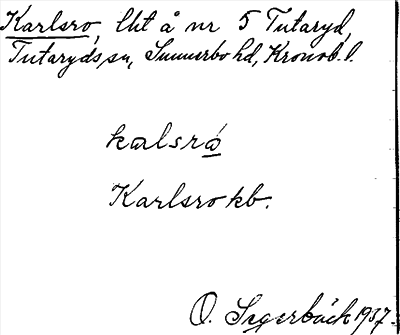 Karlsro, lht å nr 5 Tutaryd,
Tutaryds sn, Sunnerbo hd, Kronob. l.
kalsró
Karlsro kb.
O. Segerbäck 1937.